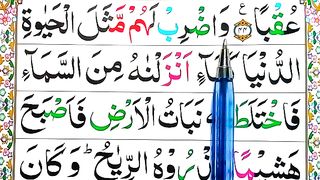 عُقْبًا ﴿٤٤﴾ ع وَاضْرِبْ لَهُمْ مَّثَلَ الْحَيٰوةِ
الدُّنْيَا ءٍ اَنْزَلْنٰهُ مِنَ السَّمَآءِ
فَاخْتَلَطَ نَبَاتُ الْاَرْضِ فَاَصْبَحَ
هَشِيْمًا رُوْهُ الرِّيٰحُ ؕ وَكَانَ